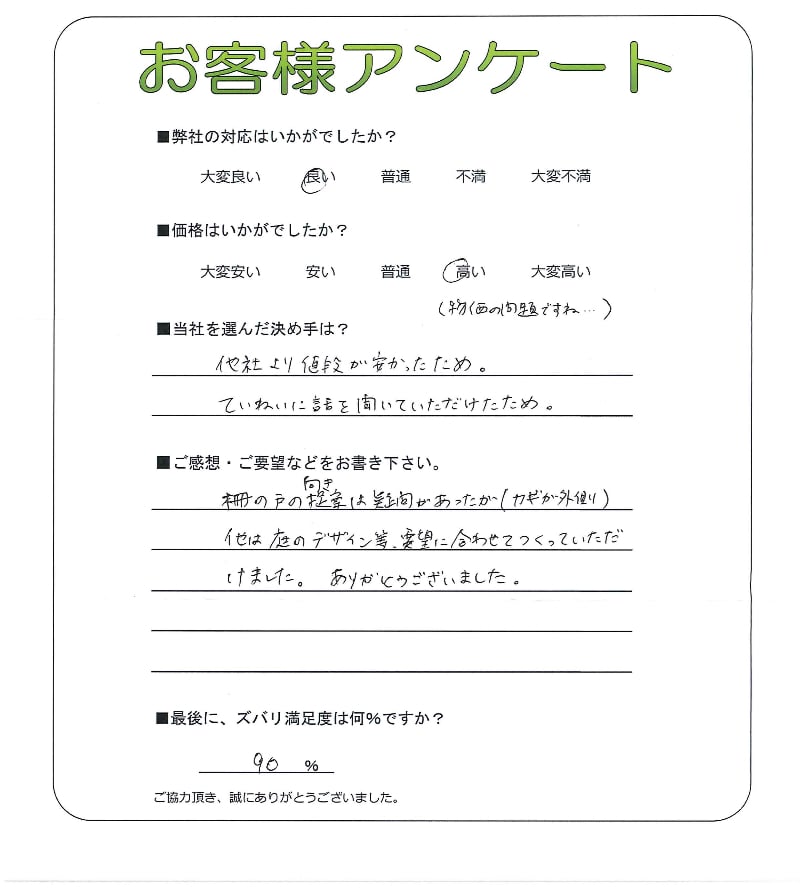 お客様アンケート
■弊社の対応はいかがでしたか？
大変良い 良い 普通 不満 大変不満
■価格はいかがでしたか？
大変安い 安い 普通 高い 大変高い
(物価の問題ですね…)
■当社を選んだ決め手は？
他社より値段が安かったため。
ていねいに話を聞いていただけたため。
■ご感想・ご要望などをお書き下さい。
向き
柵の戸の提案は疑問があったが(カギが外側)
他は庭のデザイン等、要望に合わせてつくっていただ
けました。 ありがとうございました。
■最後に、ズバリ満足度は何％ですか？
90 ％
ご協力頂き、誠にありがとうございました。